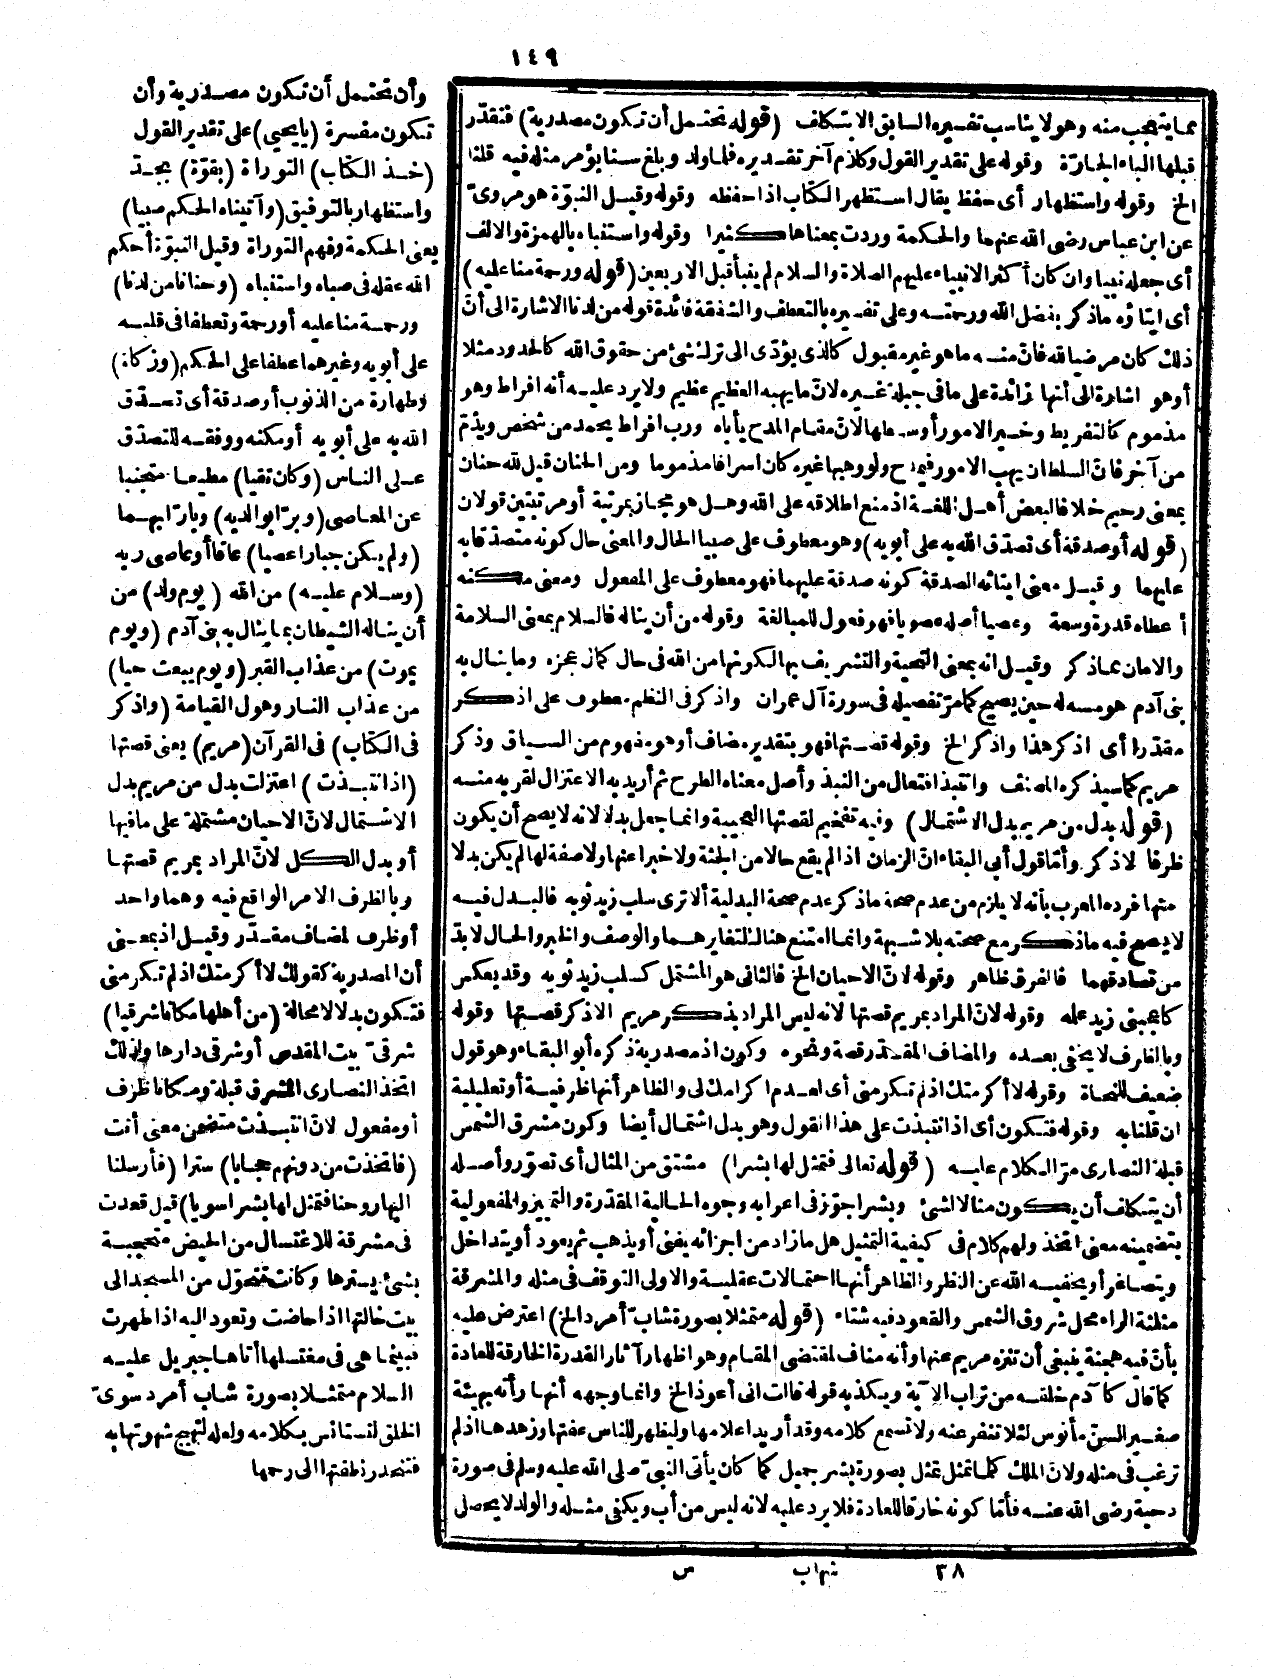 ١٤٩
مما يتعجب منه وهو لا يناسب تفسيره السابق الاستكاف (قوله تحتمل أن تكون مصدرية) فتقدّر
قبلها الباء الجارّة وقوله على تقدير القول وكلام آخر تقديره فلما ولد وبلغ سنا يؤمر مثله فيه قلنا
الخ وقوله واستظهار أى حفظ يقال استظهر الكتاب اذا حفظه وقوله وقيل النبوّة هو مروىّ
عن ابن عباس رضى الله عنهما والحكمة وردت بمعناها كثيرا وقوله واستنباه بالهمزة والالف
أى جعله نبيا وان كان أكثر الانبياء عليهم الصلاة والسلام لم ينبأ قبل الاربعين (قوله ورحمة منا عليه)
أى ايتاؤه ماذكر بفضل الله ورحمته وعلى تفسيره بالتعطف والشفقة فائدة قوله من لدنا الاشارة الى أنّ
ذلك كان مرضيا لله فانّ منه ما هو غير مقبول كالذى يؤدّى الى ترك شئ من حقوق الله كالحدود مثلا
أو هو اشارة الى أنها زائدة على ما فى جبلة غيره لانّ ما يهبه العظيم عظيم ولا يرد عليه أنه افراط وهو
مذموم كالتفريط وخير الامور أوسطها لانّ مقام المدح يأباه ورب افراط يحمد من شخص ويذمّ
من آخر فانّ السلطان يهب الامور فيمدح ولو وهبها غيره كان اسرافا مذموما ومن الحنان قيل لله حنان
بمعنى رحيم خلافا لبعض أهل اللغة اذ منع اطلاقه على الله وهل هو مجاز بمرتبة أو مرتبتين قولان
(قوله أو صدقة أى تصدّق الله به على أبويه) وهو معطوف على صبيا الحال والمعنى حال كونه متصدّقا به
عليهما وقيل معنى ايتائه الصدقة كونه صدقة عليهما فهو معطوف على المفعول ومعنى مكنه
أعطاه قدرة وسعة وعصيا أصله عصويا فهو فعول للمبالغة وقوله من أن يناله فالسلام بمعنى السلامة
والامان مما ذكر وقيل انه بمعنى التحية والتشريف بها لكونها من الله فى حال كمال عجزه وما ينال به
بنى آدم هو مسه له حين يصيح كما مرّ تفصيله فى سورة آل عمران واذكر فى النظم معطوف على اذكر
مقدّرا أى اذكر هذا واذكر الخ وقوله قصتها فهو بتقدير مضاف أو هو مفهوم من السياق وذكر
مريم كما سيذكره المصنف وانتبذ افتعال من النبذ وأصل معناه الطرح ثم أريد به الاعتزال لقربه منه
(قوله بدل من مريم بدل الاشتمال) وفيه تفخيم لقصتها العجيبة وانما جعل بدلا لانه لا يصح أن يكون
ظرفا لاذكر وأمّا قول أبى البقاء انّ الزمان اذا لم يقع حالا من الجثة ولا خبرا عنها ولا صفة لها لم يكن بدلا
منها فرده المعرب بأنه لا يلزم من عدم صحة ماذكر عدم صحة البدلية ألا ترى سلب زيد ثوبه فالبدل فيه
لا يصح فيه ماذكر مع صحته بلا شبهة وانما امتنع هناك لتغايرهما والوصف والخبر والحال لا بدّ
من تصادقهما فالفرق ظاهر وقوله لانّ الاحيان الخ فالثانى هو المشتمل كسلب زيد ثوبه وقد يعكس
كأعجبنى زيد علمه وقوله لانّ المراد بمريم قصتها لانه ليس المراد بذكر مريم الا ذكر قصتها وقوله
وبالظرف لا يخفى بعده والمضاف المقدّر قصة ونحوه وكون اذ مصدرية ذكره أبو البقاء وهو قول
ضعيف للنحاة وقوله لا أكرمتك اذ لم تكرمنى أى لعدم اكرامك لى والظاهر أنها ظرفية أو تعليلية
ان قلنا به وقوله فتكون أى اذ انتبذت على هذا القول وهو بدل اشتمال أيضا وكون مشرق الشمس
قبلة النصارى مرّ الكلام عليه (قوله تعالى فتمثل لها بشرا) مشتق من المثال أى تصوّر وأصله
أن يتكلف أن يكون مثالا لشئ وبشرا جوّز فى اعرابه وجوه الحالية المقدّرة والتمييز والمفعولية
بتضمينه معنى اتخذ ولهم كلام فى كيفية التمثيل هل مازاد من اجزائه يفنى أو يذهب ثم يعود أو يتداخل
ويتصاغر أو يخفيه الله عن النظر والظاهر أنها احتمالات عقلية والاولى التوقف فى مثله والمشرقة
مثلثة الراء محل شروق الشمس والقعود فيه شتاء (قوله متمثلا بصورة شابّ أمرد الخ) اعترض عليه
بأنّ فيه هجنة ينبغى أن تنزه مريم عنها وأنه مناف لمقتضى المقام وهو اظهار آثار القدرة الخارقة للعادة
كما قال كآدم خلقه من تراب الآية ويكذبه قوله قالت انى أعوذ الخ وانما وجهه أنها رأته بهيئة
صغير السنّ مأنوس لئلا تنفر عنه ولا تسمع كلامه وقد أريد اعلامها وليظهر للناس عفتها وزهدها اذ لم
ترغب فى مثله ولانّ الملك كلما تمثل تمثل بصورة بشر جميل كما كان يأتى النبىّ صلى الله عليه وسلم فى صورة
دحية رضى الله عنه فأمّا كونه خارقا للعادة فلا يرد عليه لانه ليس من أب ويكفى مثله والولد لا يحصل
٣٨ شهاب س
وأن تحتمل أن تكون مصدرية وأن
تكون مفسرة (يا يحيى) على تقدير القول
(خذ الكتاب) التوراة (بقوّة) بجدّ
واستظهار بالتوفيق (وآتيناه الحكم صبيا)
يعنى الحكمة وفهم التوراة وقيل النبوّة أحكم
الله عقله فى صباه واستنباه (وحنانا من لدنا)
ورحمة منا عليه أو رحمة وتعطفا فى قلبه
على أبويه وغيرهما عطفا على الحكم (وزكاة)
وطهارة من الذنوب أو صدقة أى تصدّق
الله به على أبويه أو مكنه ووفقه للتصدّق
على الناس (وكان تقيا) مطيعا متجنبا
عن المعاصى (وبرّا بوالديه) وبارّا بهما
(ولم يكن جبارا عصيا) عاقا أو عاصى ربه
(وسلام عليه) من الله (يوم ولد) من
أن يناله الشيطان بما ينال به بنى آدم (ويوم
يموت) من عذاب القبر (ويوم يبعث حيا)
من عذاب النار وهول القيامة (واذكر
فى الكتاب) فى القرآن (مريم) يعنى قصتها
(اذ انتبذت) اعتزلت بدل من مريم بدل
الاشتمال لانّ الاحيان مشتملة على ما فيها
أو بدل الكل لانّ المراد بمريم قصتها
وبالظرف الامر الواقع فيه وهما واحد
أو ظرف لمضاف مقدّر وقيل اذ بمعنى
أن المصدرية كقولك لا أكرمتك اذ لم تكرمنى
فتكون بدلا لا محالة (من أهلها مكانا شرقيا)
شرقىّ بيت المقدس أو شرقى دارها ولذلك
اتخذ النصارى المشرق قبلة ومكانا ظرف
أو مفعول لانّ انتبذت متضمن معنى أتت
(فاتخذت من دونهم حجابا) سترا (فأرسلنا
اليها روحنا فتمثل لها بشرا سويا) قيل قعدت
فى مشرقة للاغتسال من الحيض متحجبة
بشئ يسترها وكانت تتحوّل من المسجد الى
بيت خالتها اذا حاضت وتعود اليه اذا طهرت
فبينما هى فى مغتسلها أتاها جبريل عليه
السلام متمثلا بصورة شاب أمرد سوىّ
الخلق لتستأنس بكلامه ولعله لتهيج شهوتها به
فتنحدر نطفتها الى رحمها